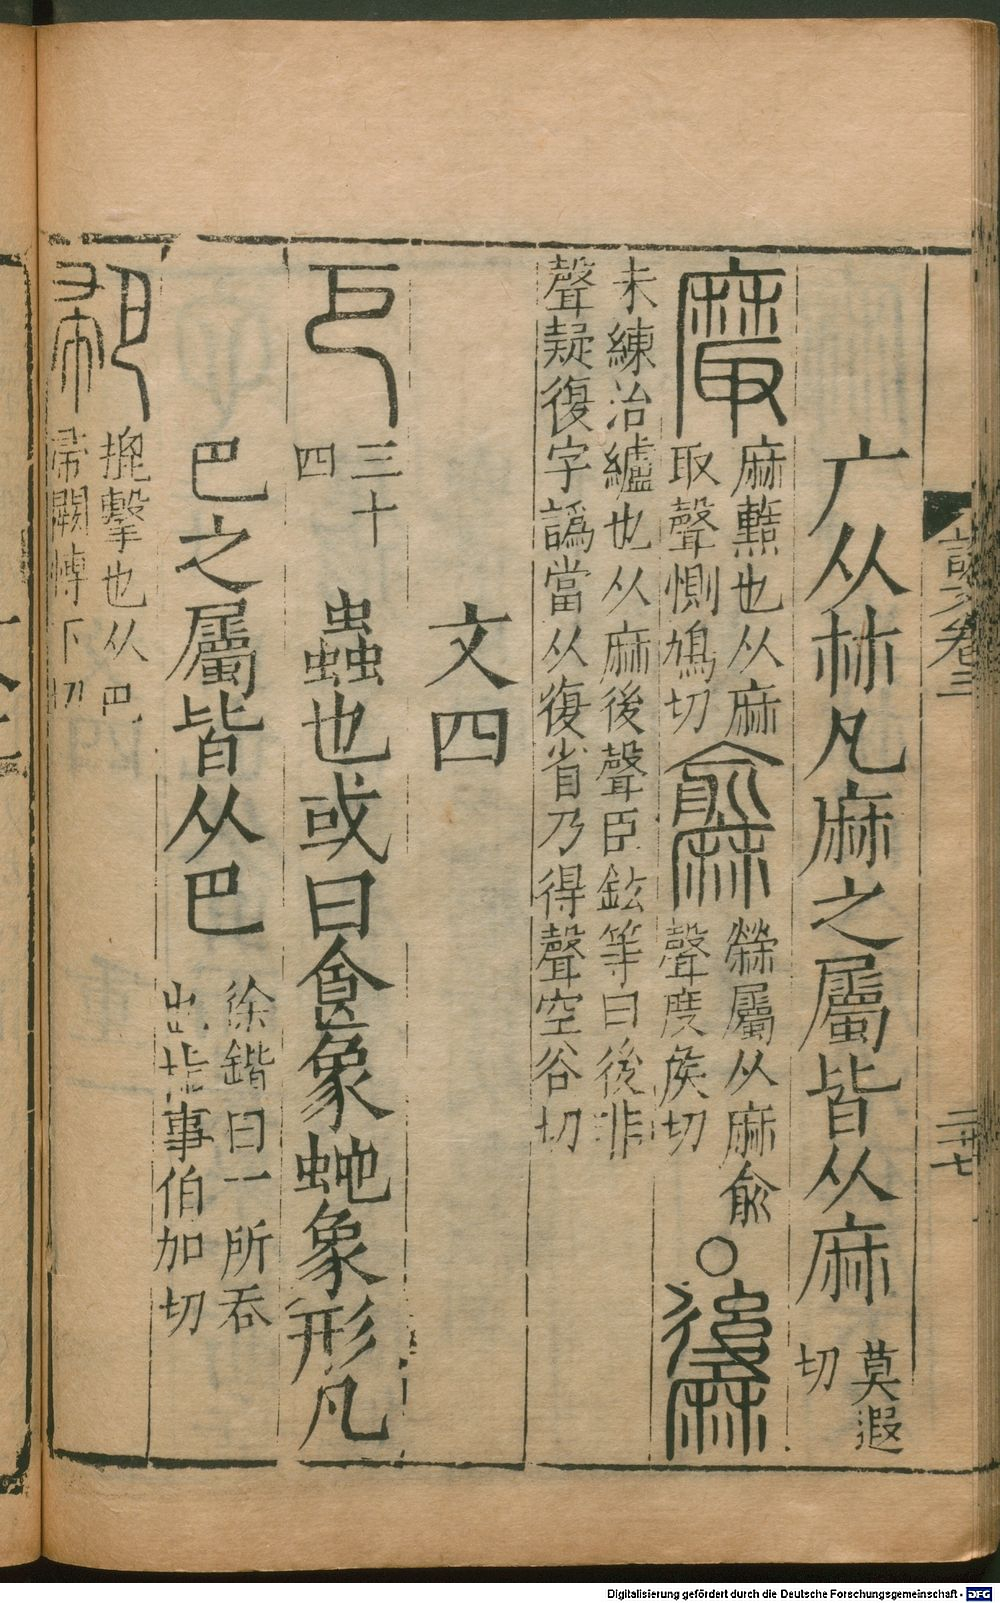 說文卷三
二十七
广从𣏟凡麻之屬皆从麻 莫遐切
𪎮 麻藍也从麻取聲惻鳩切 𪎭 檾屬从麻俞聲度矦切 〇 𪎰
未練治纑也从麻後聲臣鉉等曰後非
聲疑復字譌當从復省乃得聲空谷切
文四
巴 三十四 蟲也或曰食象蛇象形凡
巴之屬皆从巴 徐鍇曰一所吞也指事伯加切
𢁉 搥擊也从巴帚闕博下切
Digitalisierung gefördert durch die Deutsche Forschungsgemeinschaft - DFG